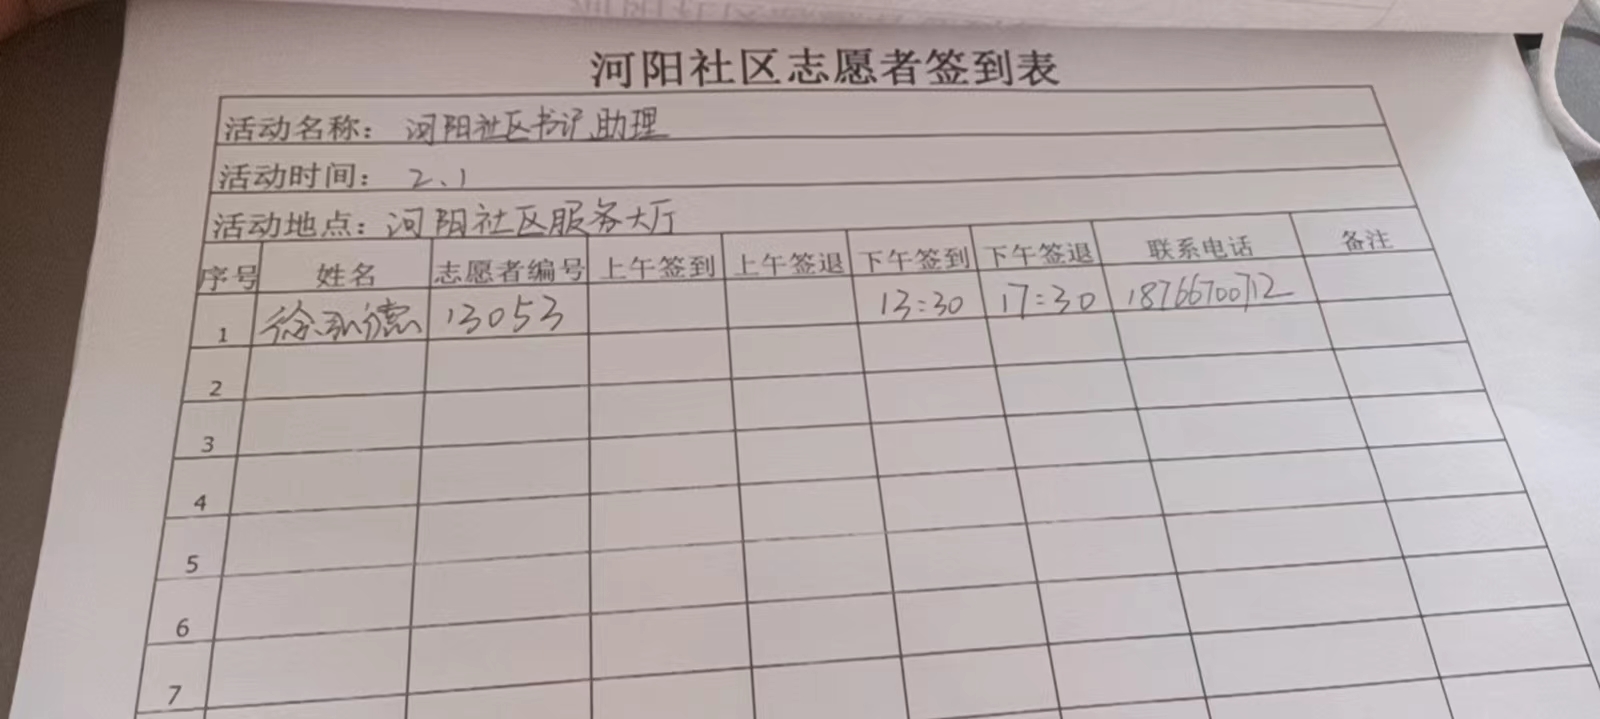 河阳社区志愿者签到表
活动名称: 河阳社区书记助理
活动时间: 2.1
活动地点: 河阳社区服务大厅
序号 姓名 志愿者编号 上午签到 上午签退 下午签到 下午签退 联系电话 备注
1 徐弘德 13053 13:30 17:30 18766700712
2
3
4
5
6
7